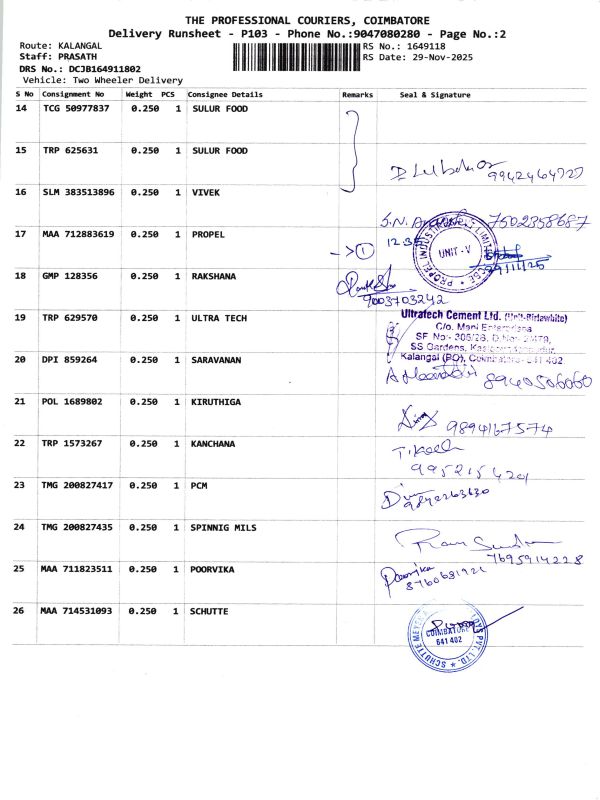 THE PROFESSIONAL COURIERS, COIMBATORE
Delivery Runsheet - P103 - Phone No.:9047080280 - Page No.:2
Route: KALANGAL RS No.: 1649118
Staff: PRASATH RS Date: 29-Nov-2025
DRS No.: DCJB164911802
Vehicle: Two Wheeler Delivery
S No Consignment No Weight PCS Consignee Details Remarks Seal & Signature
14 TCG 50977837 0.250 1 SULUR FOOD
15 TRP 625631 0.250 1 SULUR FOOD
9942464727
16 SLM 383513896 0.250 1 VIVEK
S.N. 7502358687
17 MAA 712883619 0.250 1 PROPEL
12.35
1
PROPEL INDUSTRIES LIMITED CBE
UNIT - V
29/11/25
18 GMP 128356 0.250 1 RAKSHANA
9003703242
19 TRP 629570 0.250 1 ULTRA TECH
Ultratech Cement Ltd. (Unit-Birlawhite)
C/o. Mani Enterprises
SF No:- 305/2B, D.No:-
SS Gardens,
Kalangal (PO), Coimbatore- 641 402.
20 DPI 859264 0.250 1 SARAVANAN
8940506060
21 POL 1689802 0.250 1 KIRUTHIGA
9894167574
22 TRP 1573267 0.250 1 KANCHANA
9952154201
23 TMG 200827417 0.250 1 PCM
9842263630
24 TMG 200827435 0.250 1 SPINNIG MILS
Ram
7695914228
25 MAA 711823511 0.250 1 POORVIKA
Poorvika
8760681921
26 MAA 714531093 0.250 1 SCHUTTE
COIMBATORE
641 402
PVT. LTD. * SCHUTTE MEYER